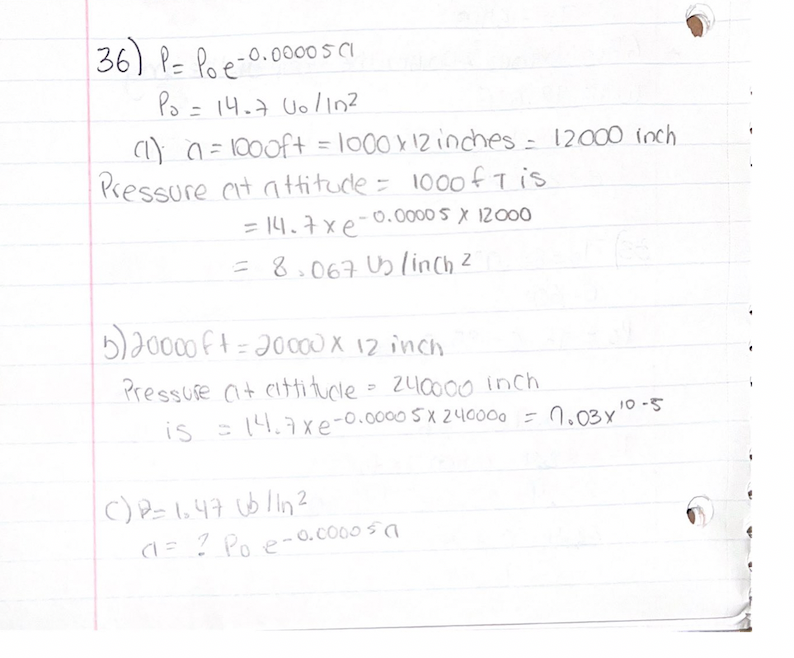 36) P = P₀ e^-0.00005a
P₀ = 14.7 lb/In²
a) a = 1000ft = 1000 x 12 inches = 12000 inch
Pressure at attitude = 1000 fT is
= 14.7 x e^-0.00005 x 12000
= 8.067 lb/inch²
b) 20000ft = 20000 x 12 inch
Pressure at attitude = 240000 inch
is = 14.7 x e^-0.00005 x 240000 = 9.03 x 10^-5
C) P = 1.47 lb/In²
a = ? P₀ e^-0.00005a